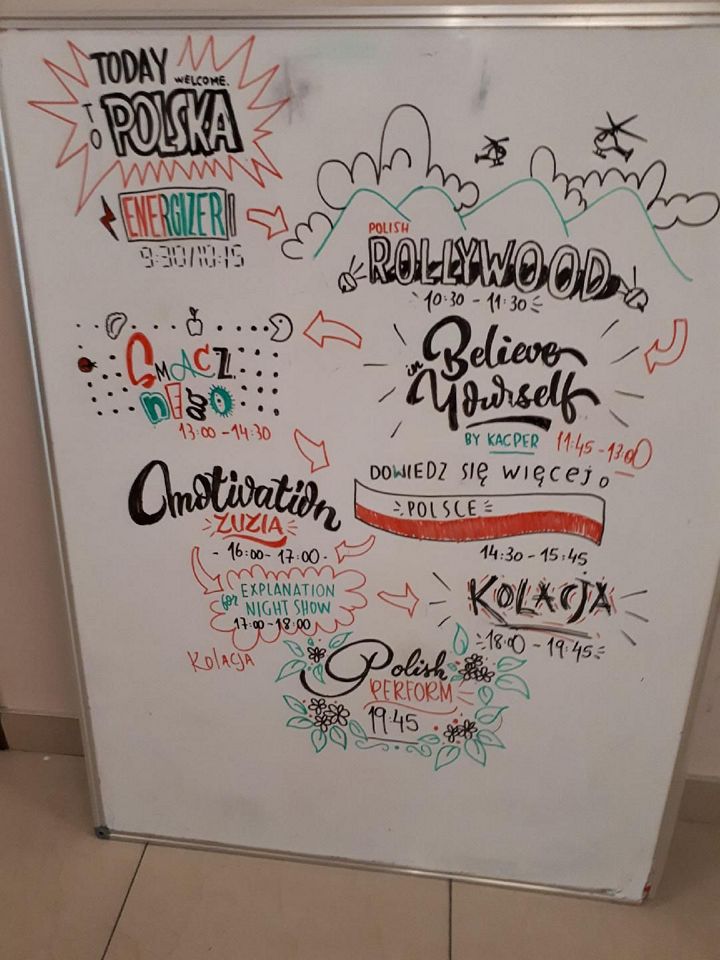 TODAY
WELCOME.
TO
POLSKA
ENERGIZER
9:30/10:15
POLISH
ROLLYWOOD
10:30 - 11:30
Believe
in
Yourself
BY KACPER
11:45 - 13:00
SMACZ
NEGO
13:00 - 14:30
DOWIEDZ SIĘ WIĘCEJ O
POLSCE
14:30 - 15:45
Omotivation
ZUZIA
- 16:00 - 17:00 -
EXPLANATION
for NIGHT SHOW
17:00 - 18:00
KOLACJA
18:00 - 19:45
KOLACJA
Polish
PERFORM
19:45